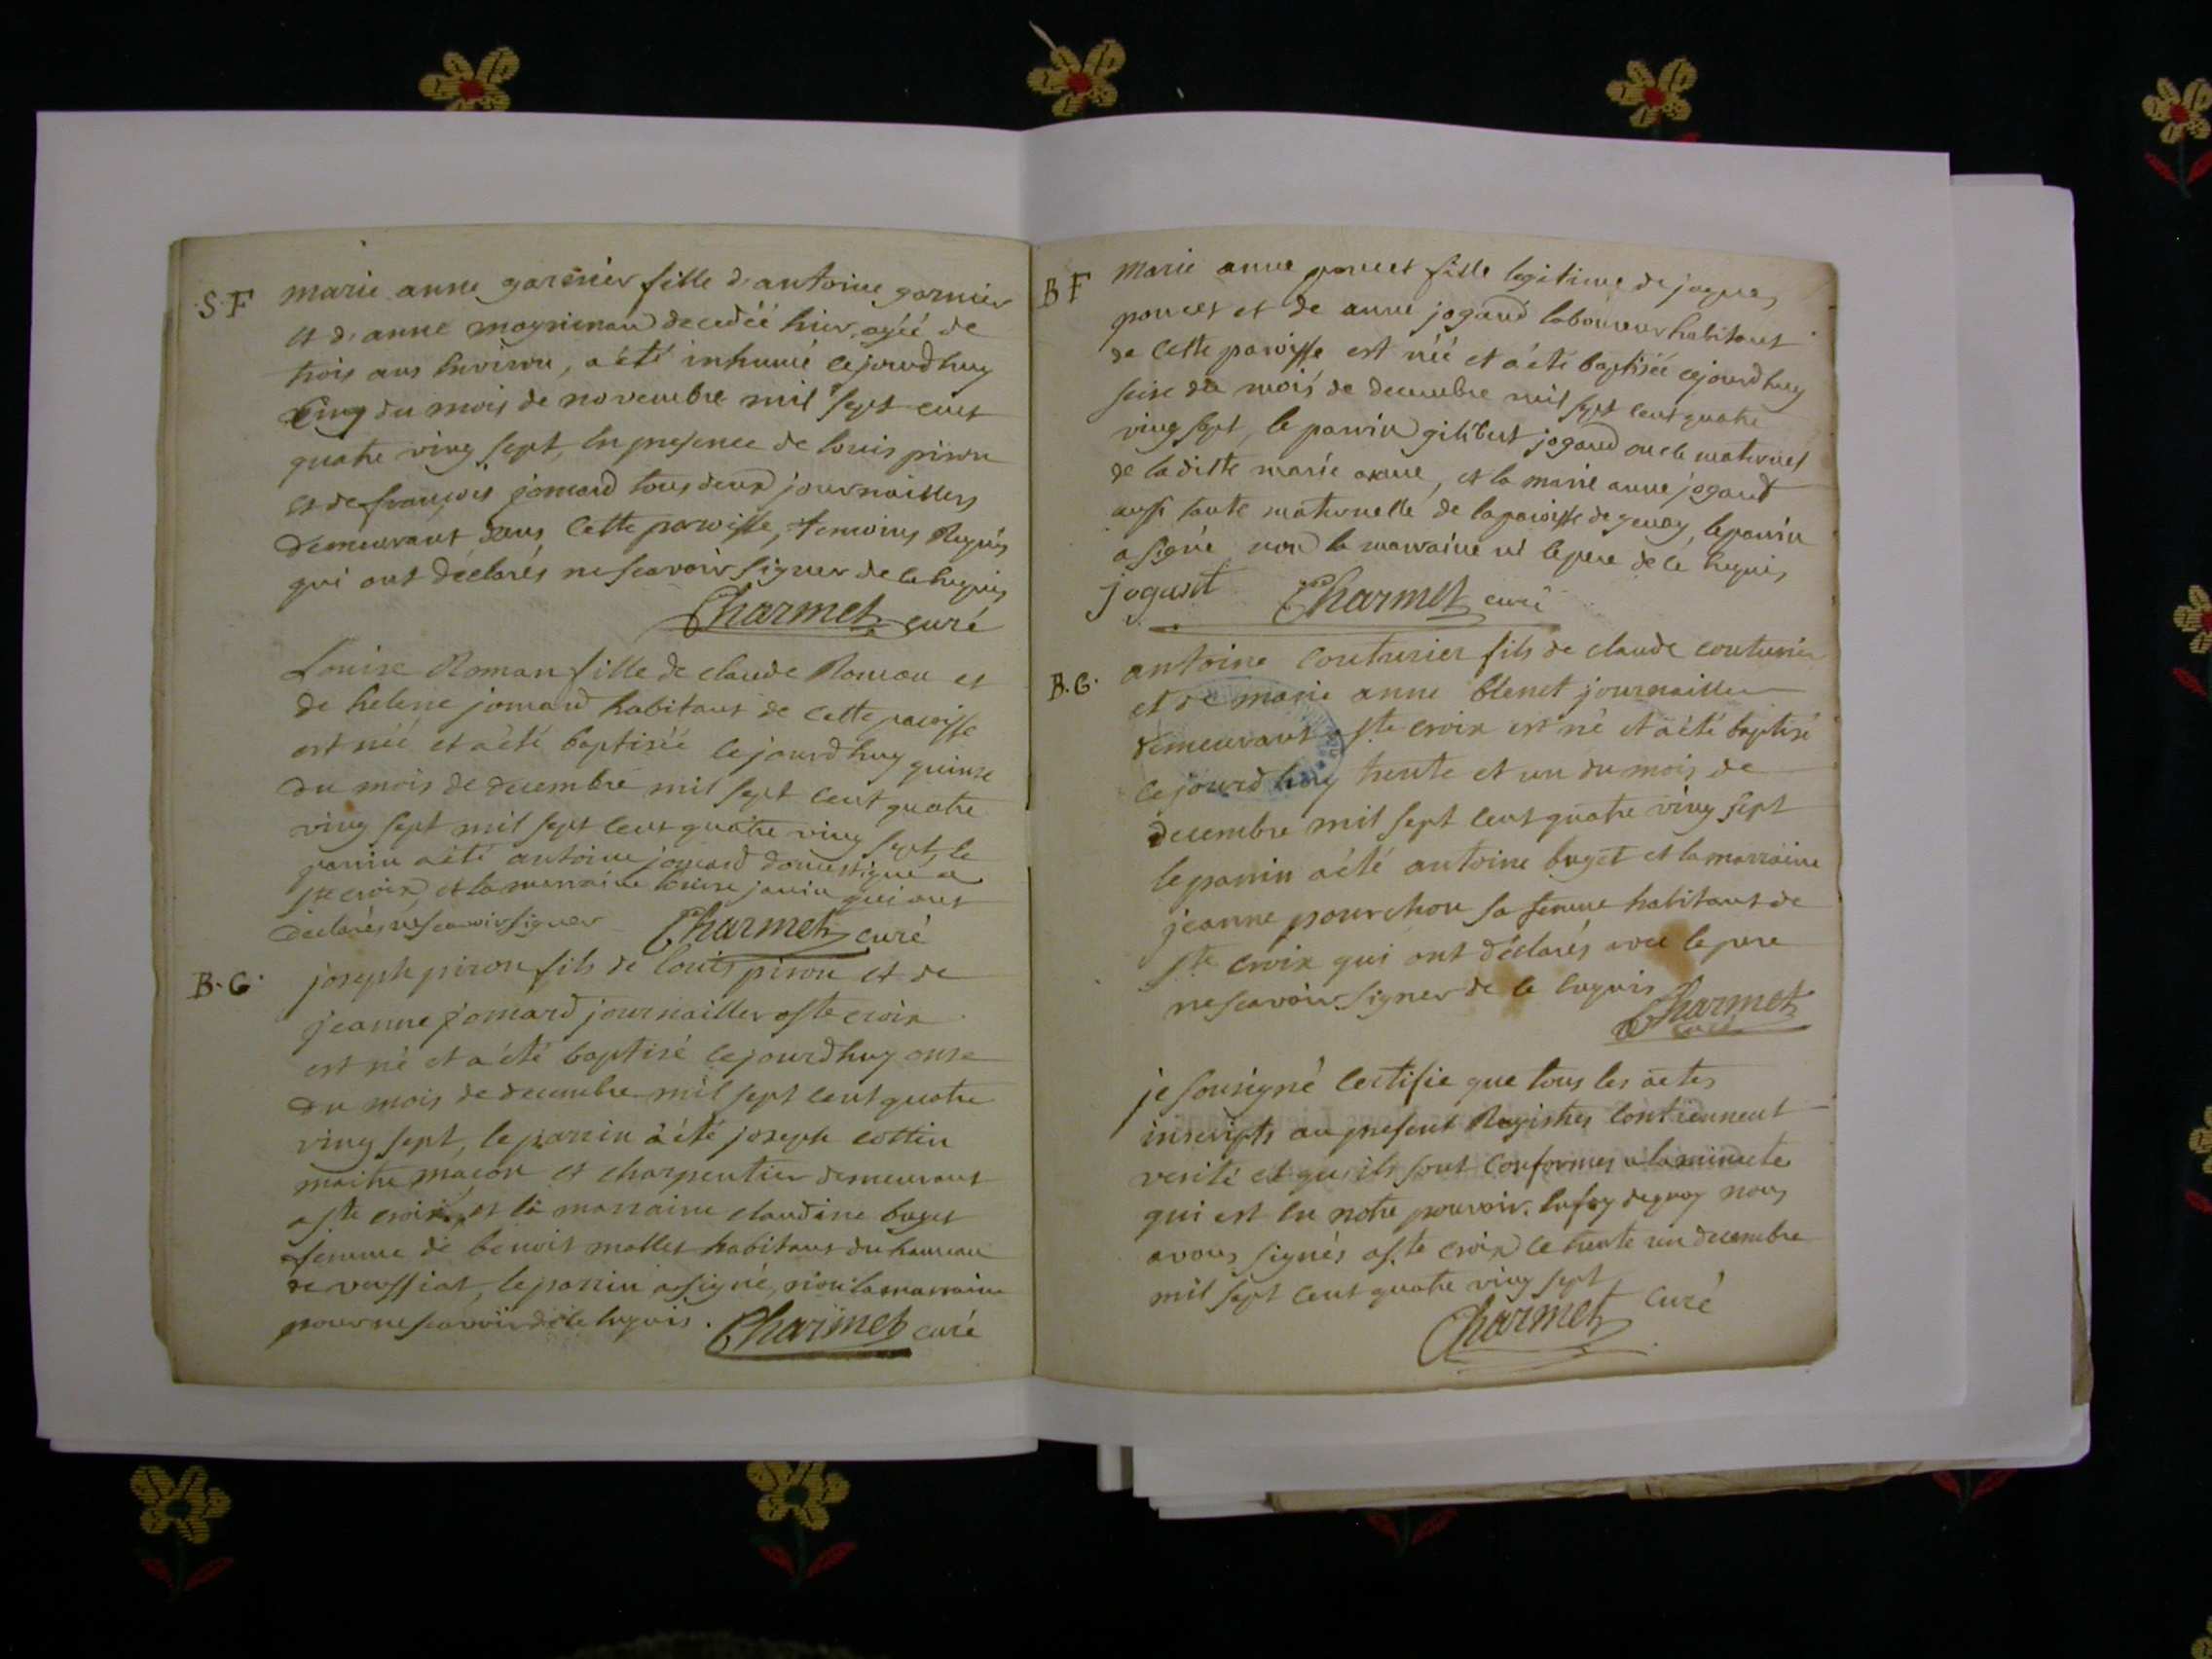 S.F marie anne garnier fille d'antoine garnier
et d'anne magnienan decedéé hier, agéé de
trois ans environ, a été inhumé cejourdhuy
cinq du mois de novembre mil sept cent
quatre ving sept, en presence de louis piron
et de françois jomard tous deux journaillers
demeurant dans cette paroisse, temoins requis
qui ont déclarés ne scavoir signer de ce enquis
Charmet curé
Louise Roman fille de claude Roman et
de helene jomard habitant de cette paroisse
est néé et a été baptiséé cejourdhuy quinze
du mois de decembre mil sept cent quatre
ving sept mil sept cent quatre ving sept, le
parrin a été antoine jomard domestique a
ste croix, et la marraine louise janin qui ont
declarés ne scavoir signer Charmet curé
B.G. joseph piron fils de louis piron et de
jeanne jomard journailler a ste croix
est né et a été baptisé cejourdhuy onze
du mois de decembre mil sept cent quatre
ving sept, le parrin a été joseph cottin
maitre maçon et charpentier demeurant
a ste croix, et la marraine claudine buget
femme de benoit mallet habitant du hameau
de veussiat, le parrin a signé, non la marraine
pour ne scavoir de ce enquis. Charmet curé
B F Marie anne poncet fille legitime de jaques
poncet et de anne jogand laboureur habitant
de cette paroisse est néé et a été baptiséé cejourdhuy
seise du mois de decembre mil sept cent quatre
ving sept, le parrin gilibert jogand oncle maternel
de laditte marie anne, et la marie anne jogand
aussi tante maternelle de la paroisse de genay, le parrin
a signé non la marraine ni le pere de ce enquis,
jogand Charmet curé
B.G. antoine couturier fils de claude couturier
et de marie anne blenet journailler
demeurant a ste croix est né et a été baptisé
cejourdhuy trente et un du mois de
decembre mil sept cent quatre ving sept
le parrin a été antoine buget et la marraine
jeanne pourchon sa femme habitant de
ste croix qui ont déclarés avec le pere
ne scavoir signer de ce enquis Charmet
curé
je sousigné certifie que tous les actes
inscripts au present Registres contiennent
verité et qu'ils sont conformes a la minute
qui est en notre pouvoir. en foy de quoy nous
avons signés a ste croix ce trente un decembre
mil sept cent quatre ving sept
Charmet curé